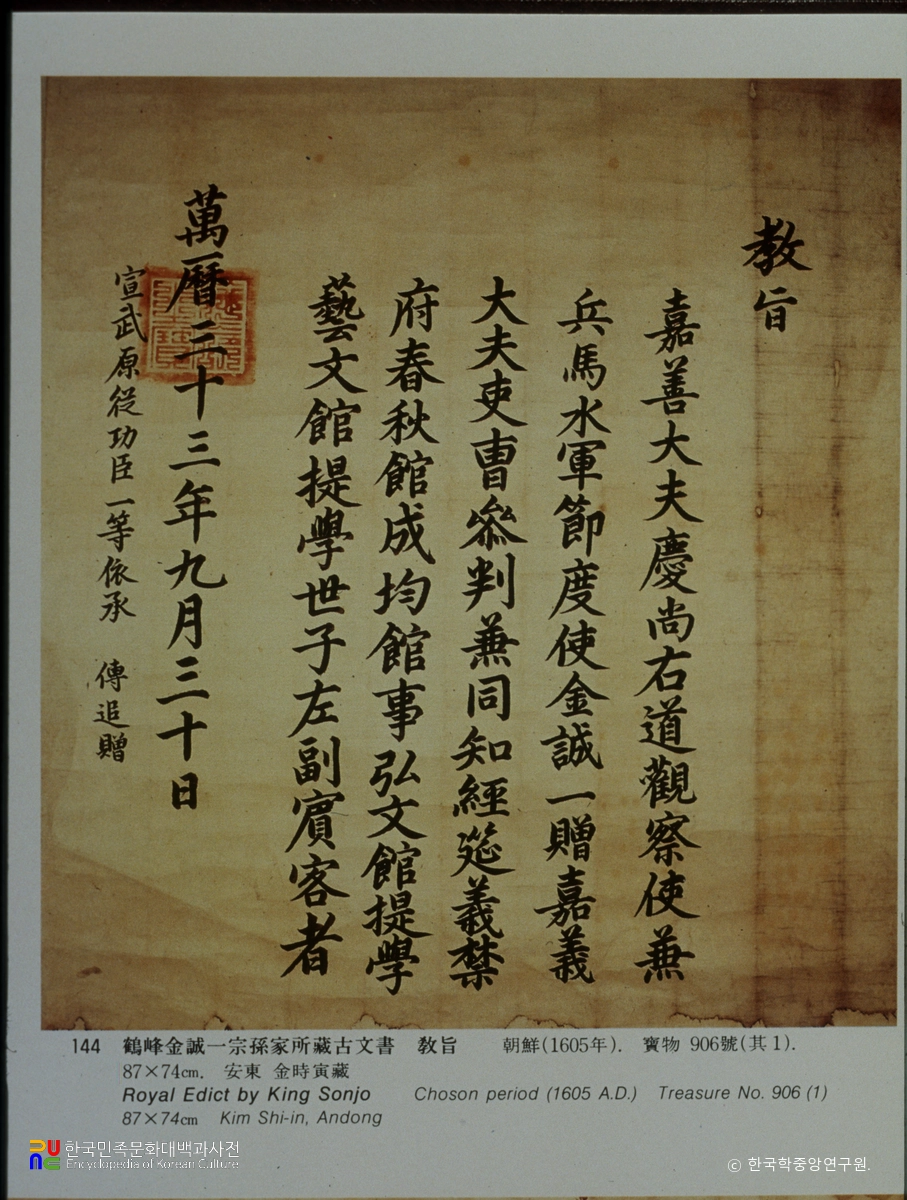 教旨
嘉善大夫慶尚右道觀察使兼
兵馬水軍節度使金誠一贈嘉義
大夫吏曹叅判兼同知經筵義禁
府春秋館成均館事弘文館提學
藝文館提學世子左副賓客者
萬曆三十三年九月三十日
宣武原從功臣一等依承 傳追贈
144 鶴峰金誠一宗孫家所藏古文書 敎旨 朝鮮(1605年). 寶物 906號(其1).
87×74cm. 安東 金時寅藏
Royal Edict by King Sonjo Choson period (1605 A.D.) Treasure No. 906 (1)
87×74cm Kim Shi-in, Andong
한국민족문화대백과사전
Encyclopedia of Korean Culture
© 한국학중앙연구원.